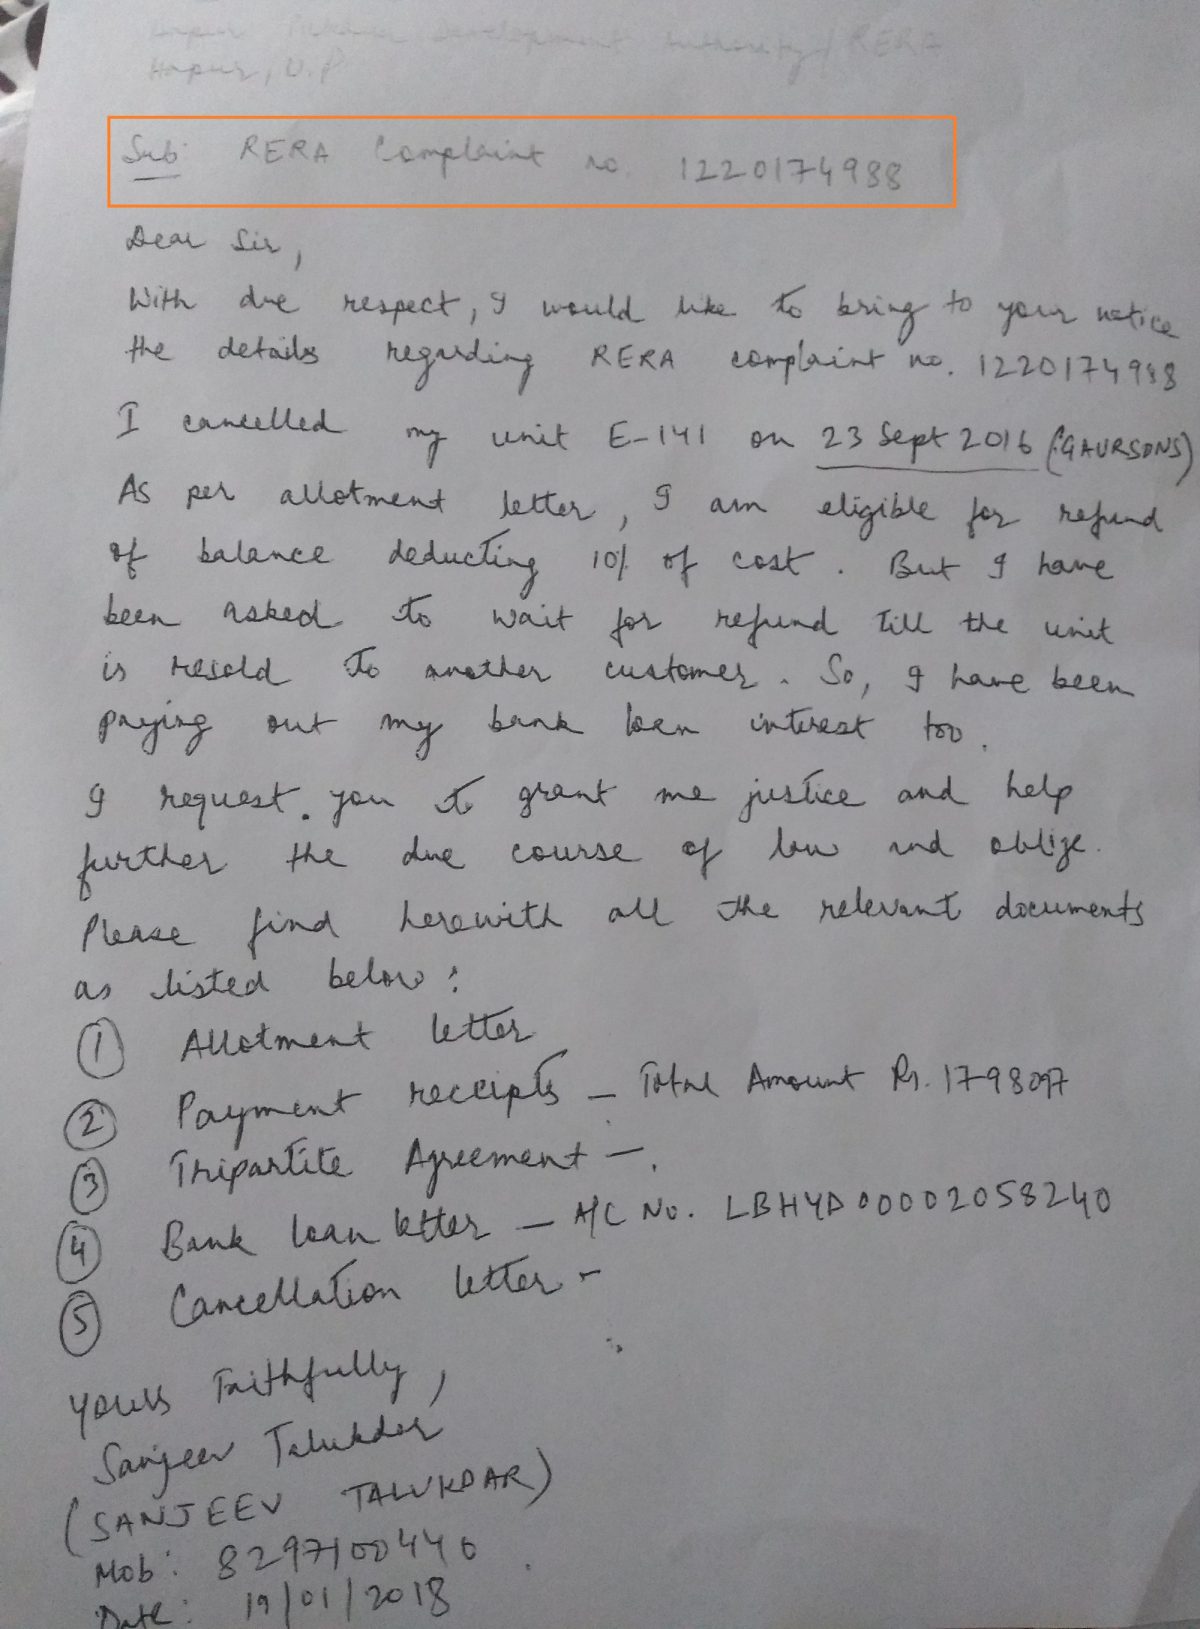 Hapur Pilkhuwa Development Authority / RERA
Hapur, U.P
Sub: RERA Complaint no. 1220174988
Dear Sir,
With due respect, I would like to bring to your notice
the details regarding RERA complaint no. 1220174988
I cancelled my unit E-141 on 23 Sept 2016 (GAURSONS)
As per allotment letter, I am eligible for refund
of balance deducting 10% of cost. But I have
been asked to wait for refund till the unit
is resold to another customer. So, I have been
paying out my bank loan interest too.
I request you to grant me justice and help
further the due course of law and oblige.
Please find herewith all the relevant documents
as listed below:
① Allotment letter
② Payment receipts – Total Amount Rs. 1798097
③ Tripartite Agreement –.
④ Bank loan letter – A/C No. LBHYD00002058240
⑤ Cancellation letter –
Yours Faithfully,
Sanjeev Talukdar
(SANJEEV TALUKDAR)
Mob: 8297100440
Date: 19/01/2018